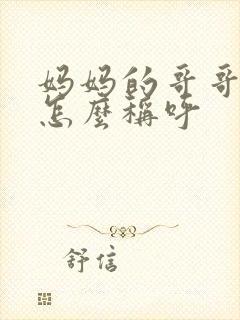 妈妈的哥哥
怎麼稱呼
舒信